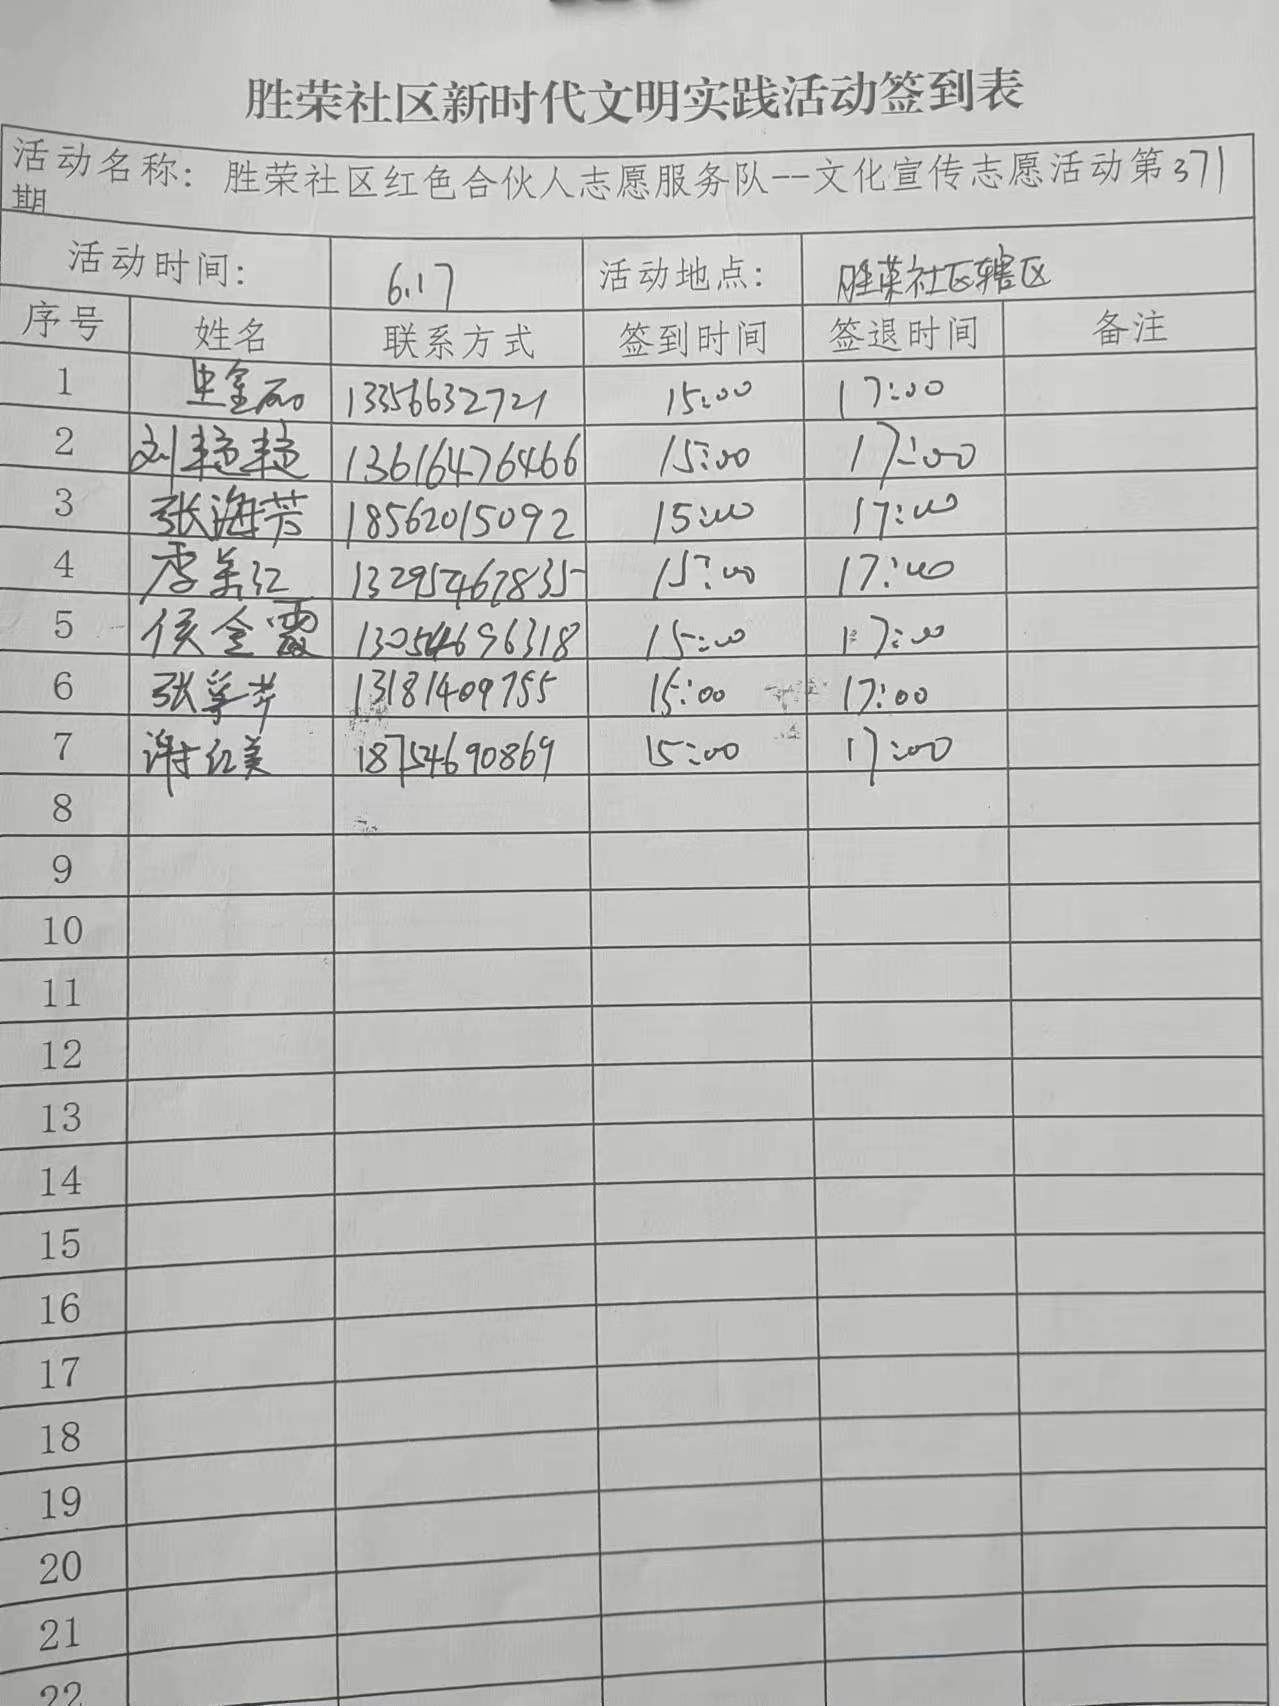 胜荣社区新时代文明实践活动签到表
活动名称: 胜荣社区红色合伙人志愿服务队--文化宣传志愿活动第371
期
活动时间: 6.17 活动地点: 胜荣社区辖区
序号 姓名 联系方式 签到时间 签退时间 备注
1 13356632721 15:00 17:00
2 刘艳艳 13616476466 15:00 17:00
3 张海芳 18562015092 15:00 17:00
4 李美江 13295467835 15:00 17:00
5 侯金霞 13054696318 15:00 17:00
6 张 13181409755 15:00 17:00
7 谢红美 18754690869 15:00 17:00
8
9
10
11
12
13
14
15
16
17
18
19
20
21
22